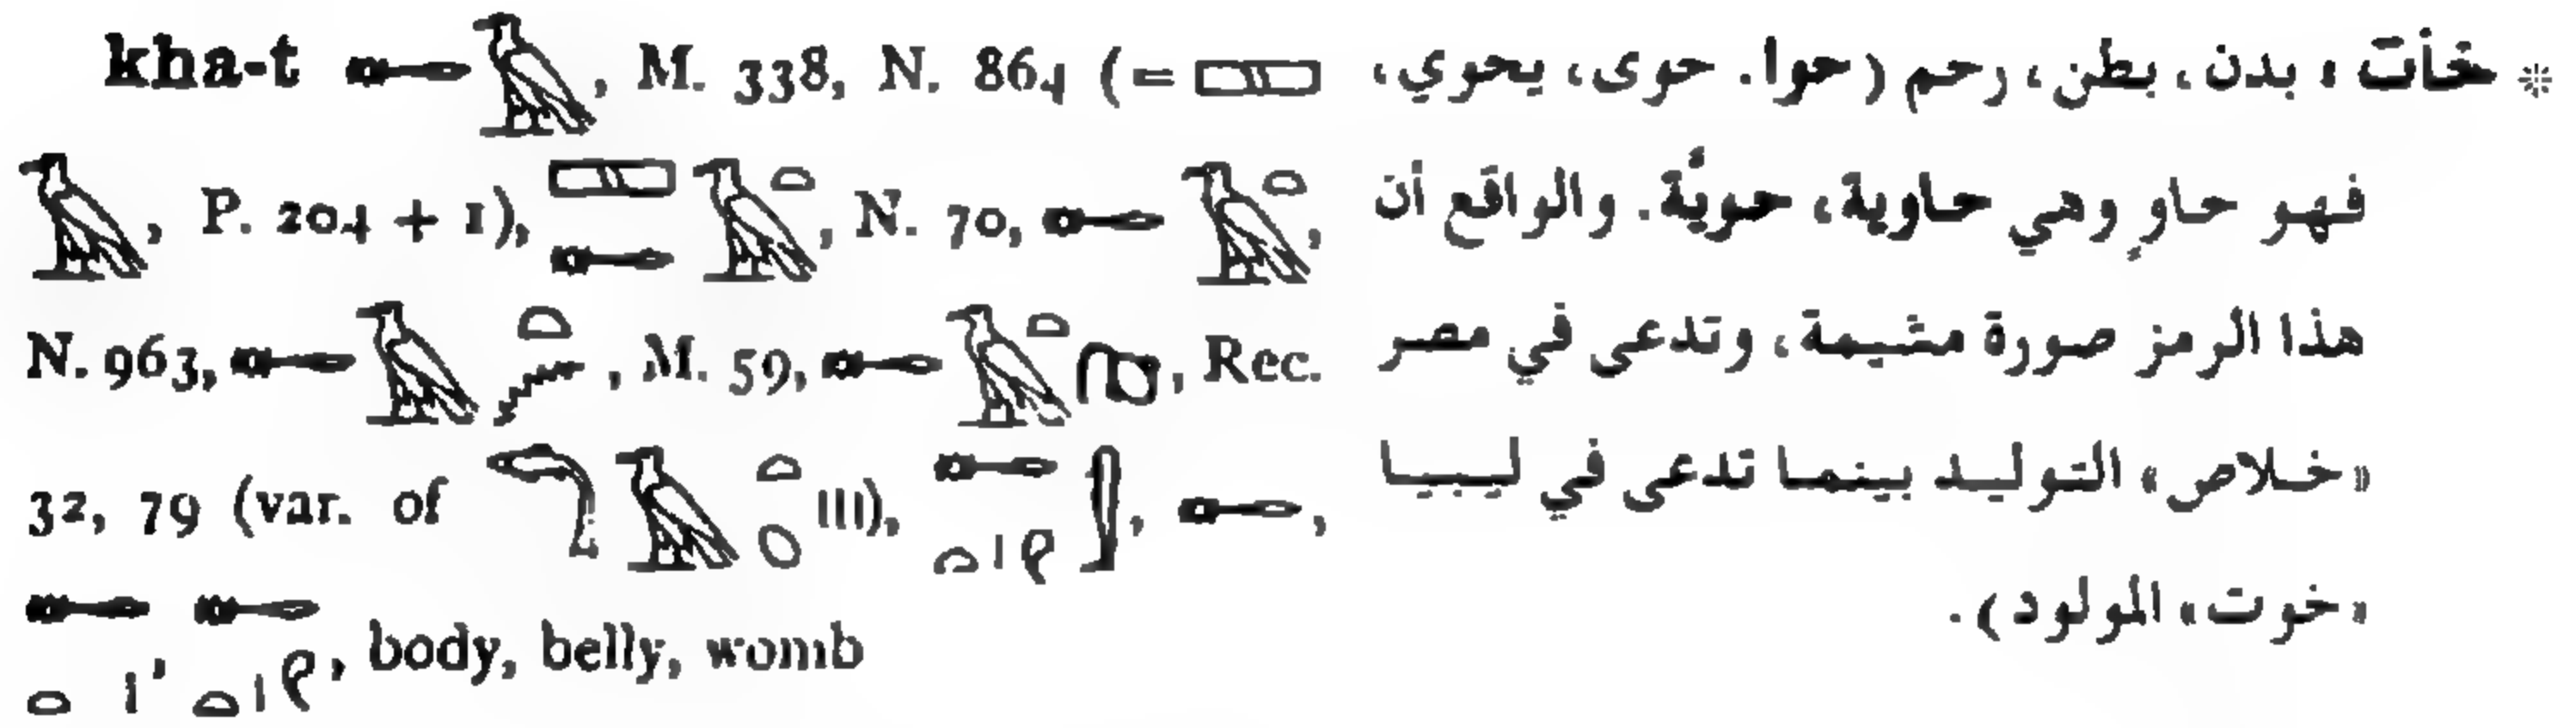 kha-t 𓄡𓄿, M. 338, N. 864 (= 𓈙
𓄿, P. 204 + 1), 𓈙𓄡𓄿𓏏, N. 70, 𓄡𓄿𓏏,
N. 963, 𓄡𓄿𓏏, M. 59, 𓄡𓄿𓏏, Rec.
32, 79 (var. of 𓄿𓏏𓏥), 𓄡𓏏𓏤𓏲, 𓄡,
𓄡𓏏𓏤, 𓄡𓏏𓏤𓏲, body, belly, womb
* خأت ، بدن ، بطن ، رحم (حوا. حوى، يحوي،
فهو حاوٍ وهي حاوية، حويَّة. والواقع أن
هذا الرمز صورة مشيمة، وتدعى في مصر
«خلاص» التوليد بينما تدعى في ليبيا
«خوت» المولود).